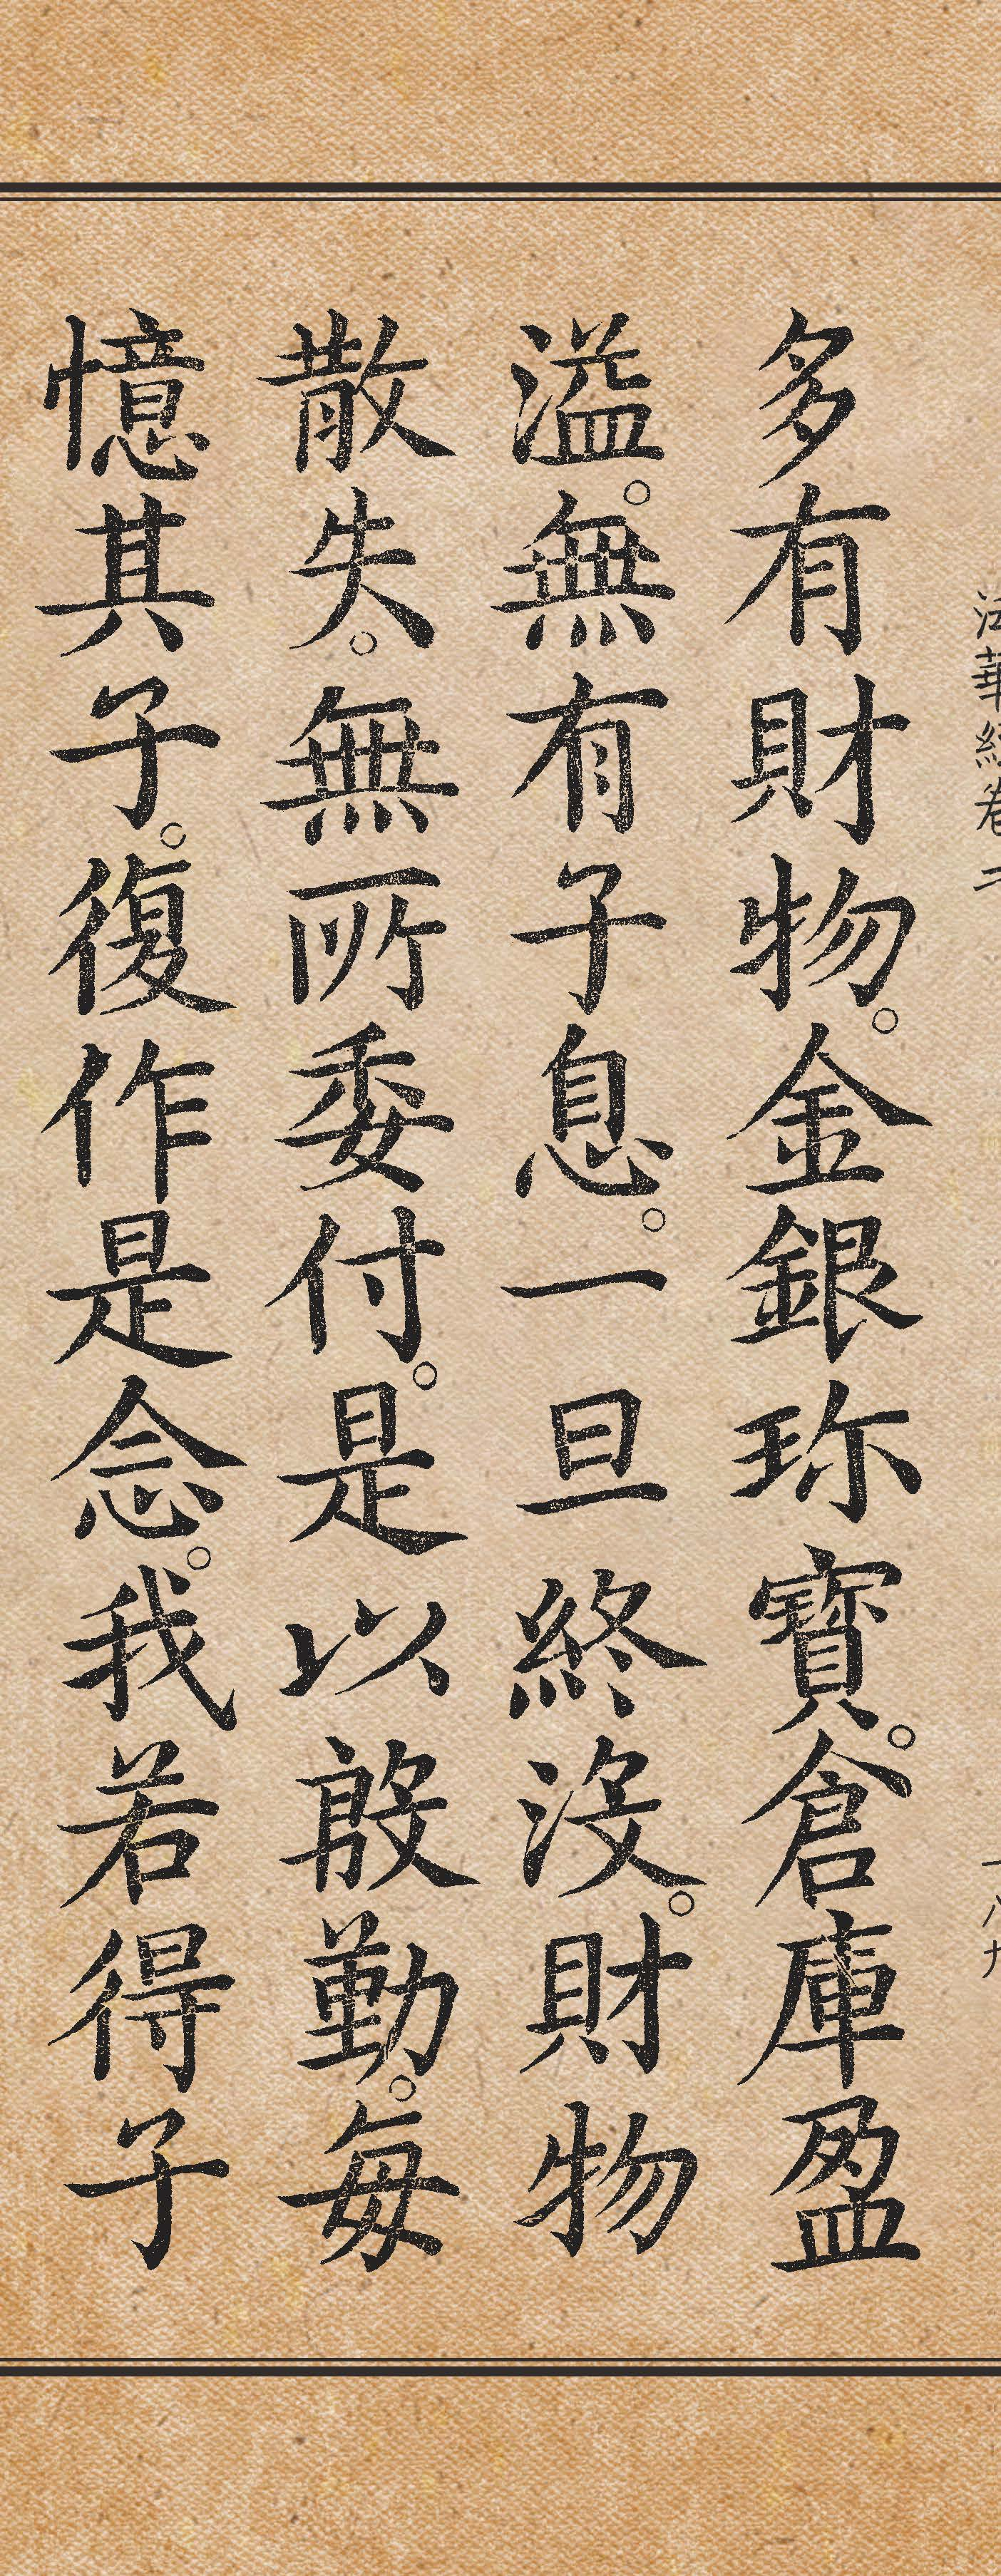 法華經卷二
十八九
多有財物。金銀珎寶。倉庫盈
溢。無有子息。一旦終沒。財物
散失。無所委付。是以慇勤。每
憶其子。復作是念。我若得子